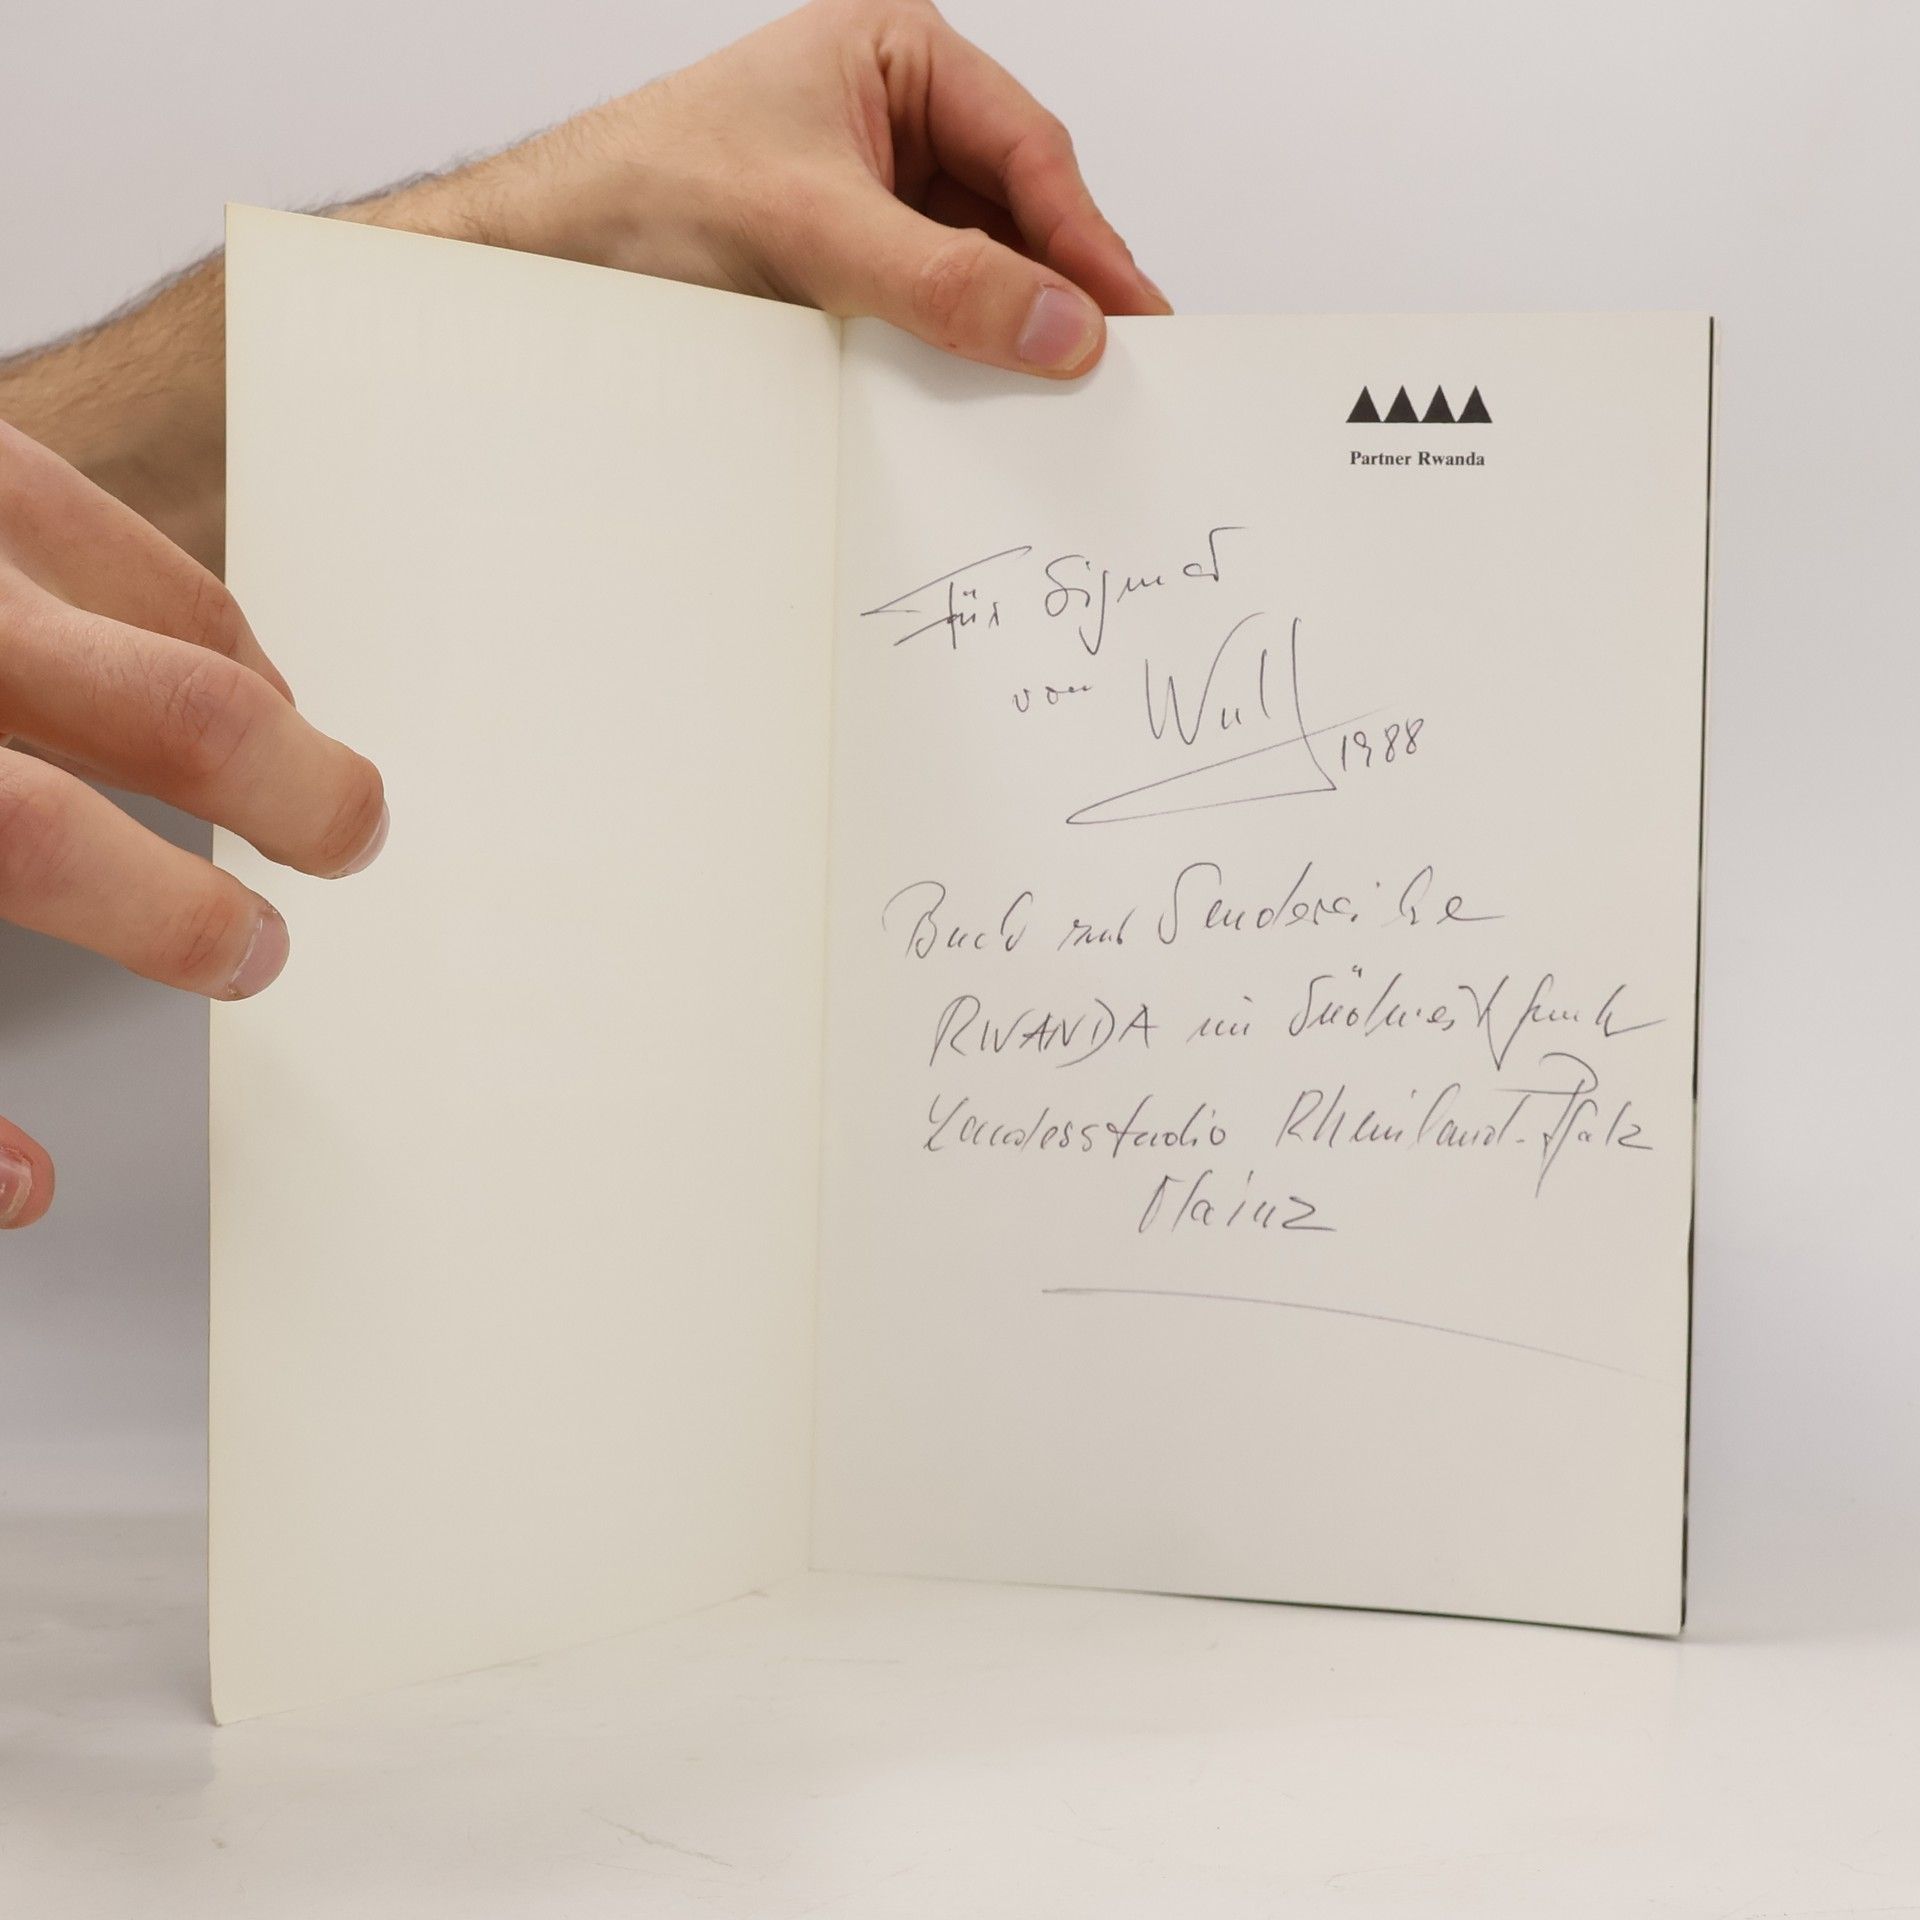 Partner Rwanda
Für Sigmar
von Wulf
1988
Buch zur Sendereihe
RWANDA im Südwestfunk
Landesstudio Rheinland-Pfalz
Mainz